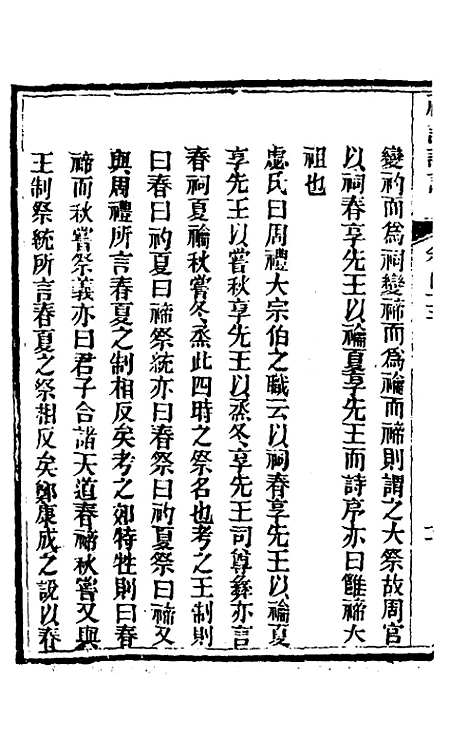 變礿而為祠變禘而為禴而禘則謂之大祭故周官
以祠春享先王以禴夏享先王而詩序亦曰雝禘大
祖也
處氏曰周禮大宗伯之職云以祠春享先王以禴夏
享先王以嘗秋享先王以烝冬享先王司尊彝亦言
春祠夏禴秋嘗冬烝此四時之祭名也考之王制則
曰春曰礿夏曰禘祭統亦曰春祭曰礿夏祭曰禘又
與周禮所言春夏之制相反矣考之郊特牲則曰春
禘而秋嘗祭義亦曰君子合諸天道春禘秋嘗又與
王制祭統所言春夏之祭相反矣鄭康成之說以春